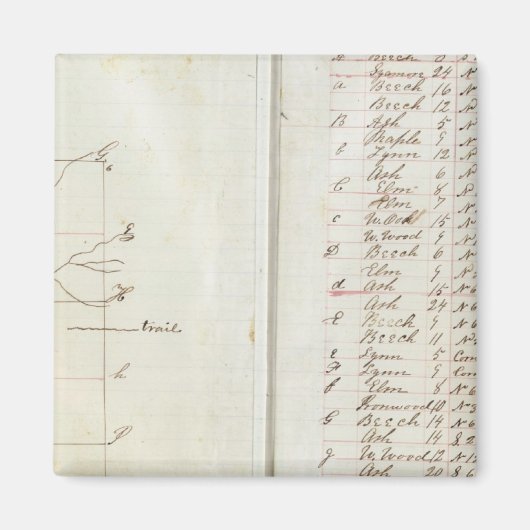 G
c
E
H
trail
h
P
A Beech 8
Sycamore 24 N
a Beech 16 N
Beech 12 N
B Ash 5 N
Maple 9 N
b Lynn 12 N
Ash 6 N
C Elm 8 N
Elm 7 N
c W. Oak 15 N
W. Wood 9 N
D Beech 6 N
Elm 9 N
d Ash 15 N 6
Ash 24 N 6
E Beech 9 N 6
Beech 11 N
e Lynn 5 Corn
F Lynn 9 Corn
f Elm 8 N 6
Ironwood 10 N 3
G Beech 14 N 6
Ash 14 S 2
g W. Wood 12 N 12
Ash 20 S 6